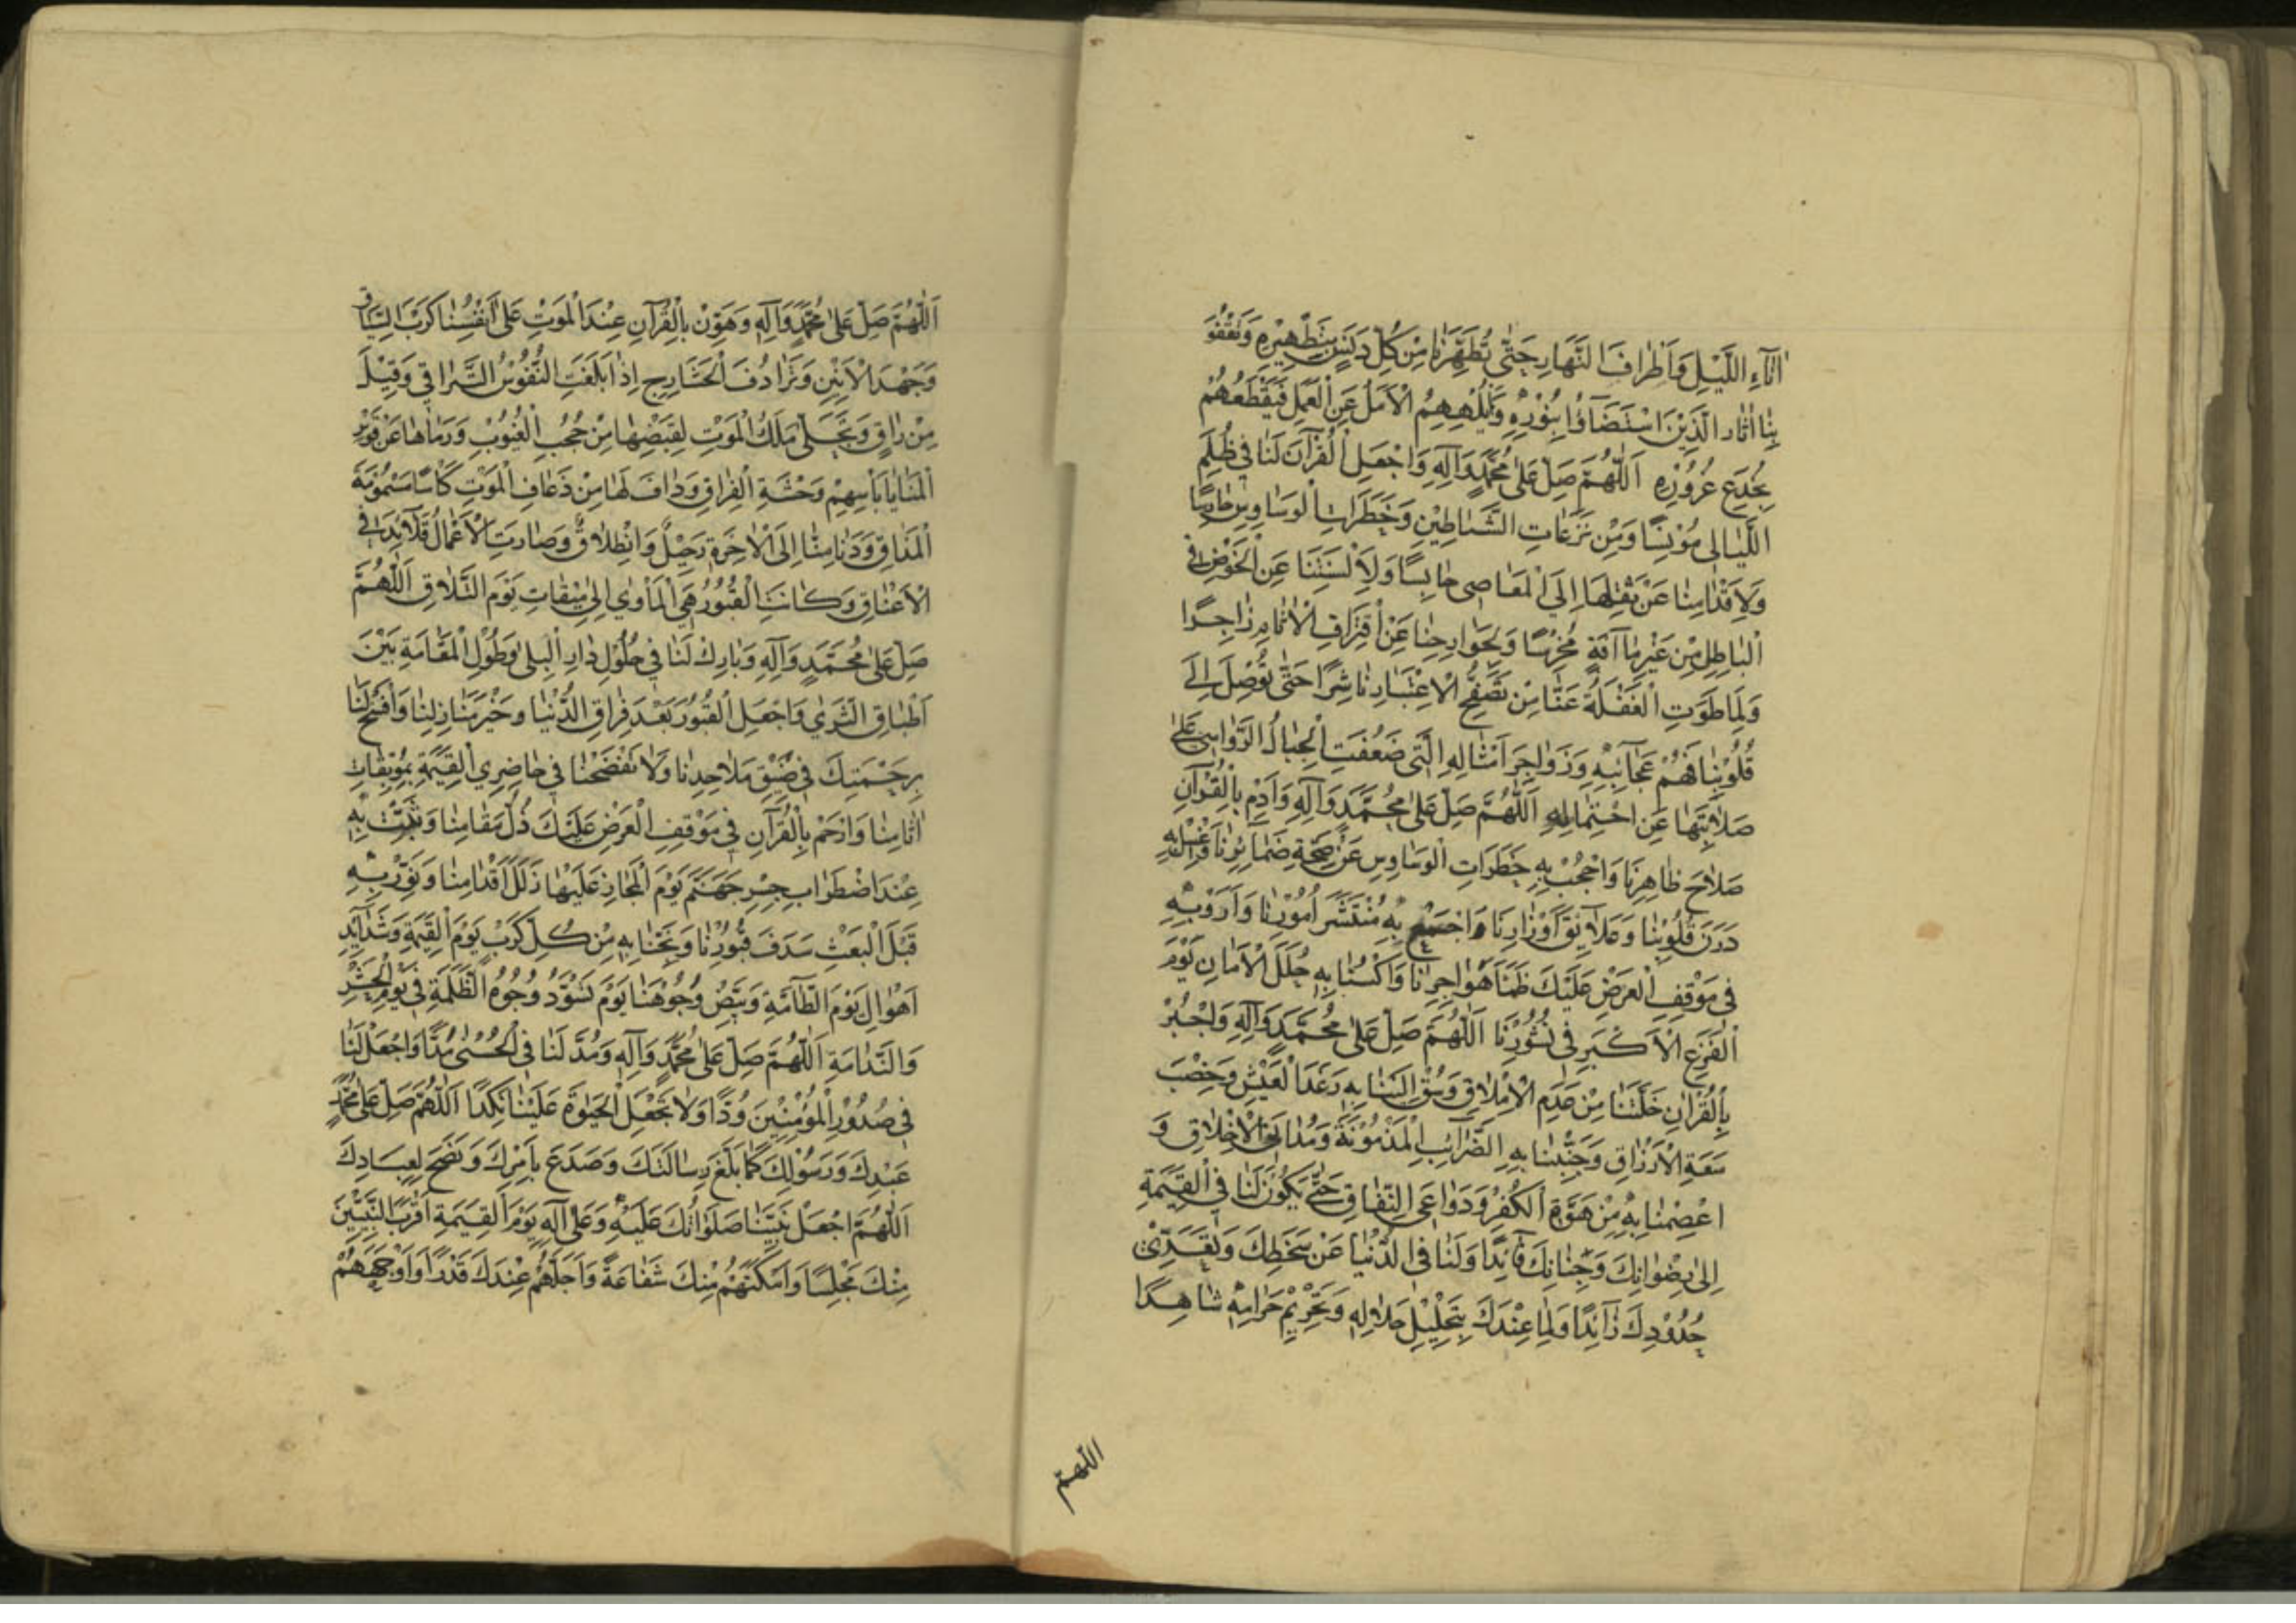 اٰنَآءَ اللَّيْلِ وَاَطْرَافَ النَّهَارِ حَتّٰى تُطَهِّرَنَا مِنْ كُلِّ دَنَسٍ بِتَطْهِيْرِهِ وَتَقْفُوَ
بِنَا اٰثَارَ الَّذِيْنَ اسْتَضَآؤُا بِنُوْرِهِ وَلَمْ يُلْهِهِمُ الْاَمَلُ عَنِ الْعَمَلِ فَيَقْطَعَهُمْ
بِخُدَعِ غُرُوْرِهِ اَللّٰهُمَّ صَلِّ عَلٰى مُحَمَّدٍ وَآلِهِ وَاجْعَلِ الْقُرْآنَ لَنَا فِي ظُلَمِ
اللَّيَالِي مُوْنِسًا وَمِنْ نَزَغَاتِ الشَّيَاطِيْنِ وَخَطَرَاتِ الْوَسَاوِسِ حَارِسًا
وَلِاَقْدَامِنَا عَنْ نَقْلِهَا اِلَى الْمَعَاصِي حَابِسًا وَلِاَلْسِنَتِنَا عَنِ الْخَوْضِ فِي
الْبَاطِلِ مِنْ غَيْرِ مَا آفَةٍ مُخْرِسًا وَلِجَوَارِحِنَا عَنِ اقْتِرَافِ الْاٰثَامِ زَاجِرًا
وَلِمَا طَوَتِ الْغَفْلَةُ عَنَّا مِنْ تَصَفُّحِ الْاِعْتِبَارِ نَاشِرًا حَتّٰى تُوْصِلَ اِلٰى
قُلُوْبِنَا فَهْمَ عَجَآئِبِهِ وَزَوَاجِرَ اَمْثَالِهِ الَّتِي ضَعُفَتِ الْجِبَالُ الرَّوَاسِي عَلٰى
صَلَابَتِهَا عَنِ احْتِمَالِهِ اَللّٰهُمَّ صَلِّ عَلٰى مُحَمَّدٍ وَآلِهِ وَاَدِمْ بِالْقُرْآنِ
صَلَاحَ ظَاهِرِنَا وَاحْجُبْ بِهِ خَطَرَاتِ الْوَسَاوِسِ عَنْ صِحَّةِ ضَمَآئِرِنَا وَاغْسِلْ بِهِ
دَرَنَ قُلُوْبِنَا وَعَلَآئِقَ اَوْزَارِنَا وَاجْمَعْ بِهِ مُنْتَشَرَ اُمُوْرِنَا وَاَرْوِ بِهِ
فِي مَوْقِفِ الْعَرْضِ عَلَيْكَ ظَمَأَ هَوَاجِرِنَا وَاكْسُنَا بِهِ حُلَلَ الْاَمَانِ يَوْمَ
الْفَزَعِ الْاَكْبَرِ فِي نُشُوْرِنَا اَللّٰهُمَّ صَلِّ عَلٰى مُحَمَّدٍ وَآلِهِ وَاجْبُرْ
بِالْقُرْآنِ خَلَّتَنَا مِنْ عَدَمِ الْاِمْلَاقِ وَسُقْ اِلَيْنَا بِهِ رَغَدَ الْعَيْشِ وَخِصْبَ
سَعَةِ الْاَرْزَاقِ وَجَنِّبْنَا بِهِ الضَّرَآئِبَ الْمَذْمُوْمَةَ وَمَدَانِيَ الْاَخْلَاقِ وَ
اعْصِمْنَا بِهِ مِنْ هُوَّةِ الْكُفْرِ وَدَوَاعِي النِّفَاقِ حَتّٰى يَكُوْنَ لَنَا فِي الْقِيٰمَةِ
اِلٰى رِضْوَانِكَ وَجِنَانِكَ قَآئِدًا وَلَنَا فِي الدُّنْيَا عَنْ سَخَطِكَ وَتَعَدِّي
حُدُوْدِكَ ذَآئِدًا وَلِمَا عِنْدَكَ بِتَحْلِيْلِ حَلَالِهِ وَتَحْرِيْمِ حَرَامِهِ شَاهِدًا
اللهم
اَللّٰهُمَّ صَلِّ عَلٰى مُحَمَّدٍ وَآلِهِ وَهَوِّنْ بِالْقُرْآنِ عِنْدَ الْمَوْتِ عَلٰى اَنْفُسِنَا كَرْبَ السِّيَاقِ
وَجَهْدَ الْاَنِيْنِ وَتَرَادُفَ الْحَشَارِجِ اِذَا بَلَغَتِ النُّفُوْسُ التَّرَاقِي وَقِيْلَ
مِنْ رَاقٍ وَتَجَلّٰى مَلَكُ الْمَوْتِ لِقَبْضِهَا مِنْ حُجُبِ الْغُيُوْبِ وَرَمَاهَا عَنْ قَوْسِ
الْمَنَايَا بِاَسْهُمِ وَحْشَةِ الْفِرَاقِ وَدَافَ لَهَا مِنْ ذُعَافِ الْمَوْتِ كَأْسًا مَسْمُوْمَةَ
الْمَذَاقِ وَدَنَا مِنَّا اِلَى الْاٰخِرَةِ رَحِيْلٌ وَانْطِلَاقٌ وَصَارَتِ الْاَعْمَالُ قَلَآئِدَ فِي
الْاَعْنَاقِ وَكَانَتِ الْقُبُوْرُ هِيَ الْمَأْوٰى اِلٰى مِيْقَاتِ يَوْمِ التَّلَاقِ اَللّٰهُمَّ
صَلِّ عَلٰى مُحَمَّدٍ وَآلِهِ وَبَارِكْ لَنَا فِي حُلُوْلِ دَارِ الْبِلٰى وَطُوْلِ الْمُقَامَةِ بَيْنَ
اَطْبَاقِ الثَّرٰى وَاجْعَلِ الْقُبُوْرَ بَعْدَ فِرَاقِ الدُّنْيَا وَخَيْرَ مَنَازِلِنَا وَافْسَحْ لَنَا
بِرَحْمَتِكَ فِي ضِيْقِ مَلَاحِدِنَا وَلَا تَفْضَحْنَا فِي حَاضِرِي الْقِيٰمَةِ بِمُوْبِقَاتِ
اٰثَامِنَا وَارْحَمْ بِالْقُرْآنِ فِي مَوْقِفِ الْعَرْضِ عَلَيْكَ ذُلَّ مَقَامِنَا وَثَبِّتْ بِهِ
عِنْدَ اضْطِرَابِ جِسْرِ جَهَنَّمَ يَوْمَ الْمَجَازِ عَلَيْهَا زَلَلَ اَقْدَامِنَا وَنَوِّرْ بِهِ
قَبْلَ الْبَعْثِ سَدَفَ قُبُوْرِنَا وَنَجِّنَا بِهِ مِنْ كُلِّ كَرْبٍ يَوْمَ الْقِيٰمَةِ وَشَدَآئِدِ
اَهْوَالِ يَوْمِ الطَّآمَّةِ وَبَيِّضْ وُجُوْهَنَا يَوْمَ تَسْوَدُّ وُجُوْهُ الظَّلَمَةِ فِي يَوْمِ الْحَسْرَةِ
وَالنَّدَامَةِ اَللّٰهُمَّ صَلِّ عَلٰى مُحَمَّدٍ وَآلِهِ وَمُدَّ لَنَا فِي الْحُسْنٰى مَدًّا وَاجْعَلْ لَنَا
فِي صُدُوْرِ الْمُؤْمِنِيْنَ وُدًّا وَلَا تَجْعَلِ الْحَيٰوةَ عَلَيْنَا نَكَدًا اَللّٰهُمَّ صَلِّ عَلٰى مُحَمَّدٍ
عَبْدِكَ وَرَسُوْلِكَ كَمَا بَلَّغَ رِسَالَتَكَ وَصَدَعَ بِاَمْرِكَ وَنَصَحَ لِعِبَادِكَ
اَللّٰهُمَّ اجْعَلْ نَبِيَّنَا صَلَوَاتُكَ عَلَيْهِ وَعَلٰى آلِهِ يَوْمَ الْقِيٰمَةِ اَقْرَبَ النَّبِيِّيْنَ
مِنْكَ مَجْلِسًا وَاَمْكَنَهُمْ مِنْكَ شَفَاعَةً وَاَجَلَّهُمْ عِنْدَكَ قَدْرًا وَاَوْجَهَهُمْ